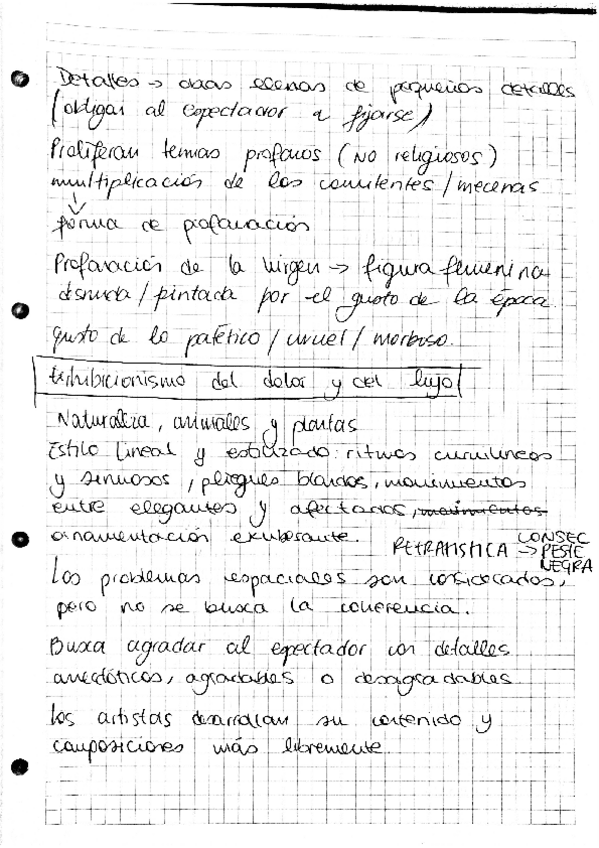 Detalles → obras llenas de pequeños detalles
(obligan al espectador a fijarse)
Proliferan temas profanos (NO religiosos)
multiplicación de los comitentes/mecenas
↓
forma de profanación
Profanación de la Virgen → figura femenina
desnuda/pintada por el gusto de la época
gusto de lo patético/cruel/morboso.
Exhibicionismo del dolor y del lujo
Naturaleza, animales y plantas
Estilo lineal y estilizado: ritmos curvilíneos
y sinuosos, pliegues blandos, movimientos
entre elegantes y afectados, movimientos
ornamentación exuberante.
RETRATISTICA → CONSEC
PESTE
NEGRA
Los problemas espaciales son considerados,
pero no se busca la coherencia.
Busca agradar al espectador con detalles
anecdóticos, agradables o desagradables
Los artistas desarrollan su contenido y
composiciones más libremente